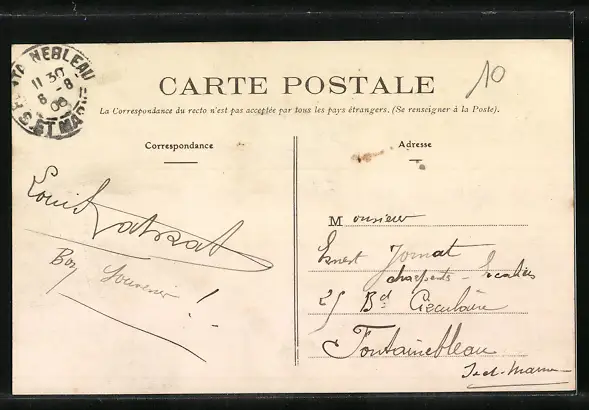 NEBLEAU
11 30
8 - 8
08
S. ET MAR
10
CARTE POSTALE
La Correspondance du recto n'est pas acceptée par tous les pays étrangers. (Se renseigner à la Poste).
Correspondance
Adresse
Louis
Bon Souvenir !
Monsieur
Ernest
25 Bd Circulaire
Fontainebleau